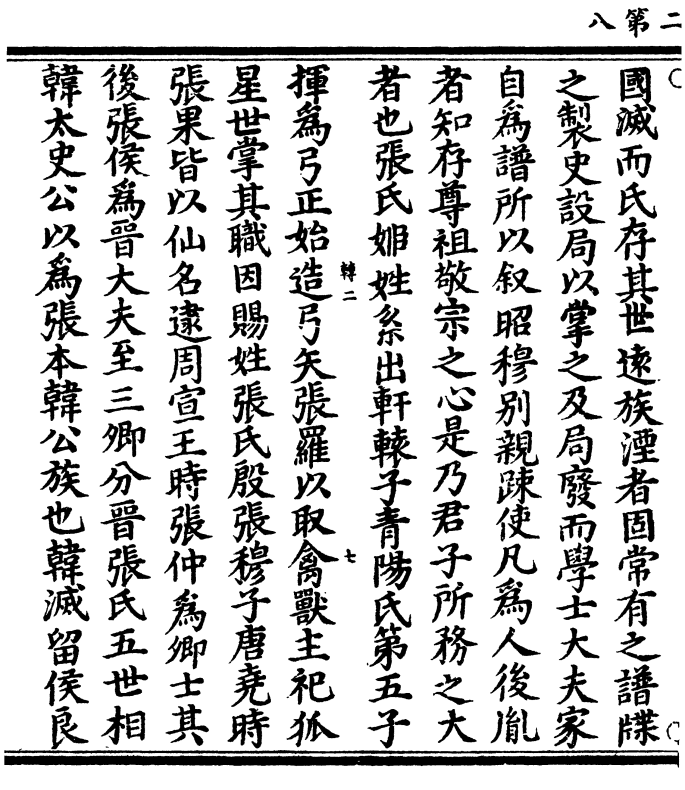 二第八
國滅而氏存其世遠族湮者固常有之譜牒
之製史設局以掌之及局廢而學士大夫家
自為譜所以叙昭穆别親踈使凡為人後胤
者知存尊祖敬宗之心是乃君子所務之大
者也張氏姬姓系出軒轅子青陽氏第五子
韓二
七
揮為弓正始造弓矢張羅以取禽獸主祀狐
星世掌其職因賜姓張氏殷張穆子唐堯時
張果皆以仙名逮周宣王時張仲為卿士其
後張侯為晉大夫至三卿分晉張氏五世相
韓太史公以為張本韓公族也韓滅留侯良